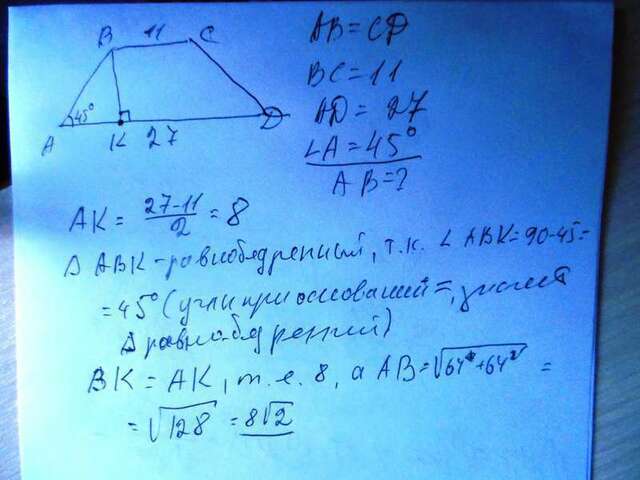 B 11 C
45°
A K 27 D
AB = CD
BC = 11
AD = 27
∠A = 45°
AB = ?
AK = \frac{27-11}{2} = 8
Δ ABK - равнобедренный, т.к. ∠ ABK = 90-45=
= 45° (углы при оснований =, значит
Δ равнобедрений)
BK = AK, т.е. 8, а AB = √64²+64² =
= √128 = 8√2